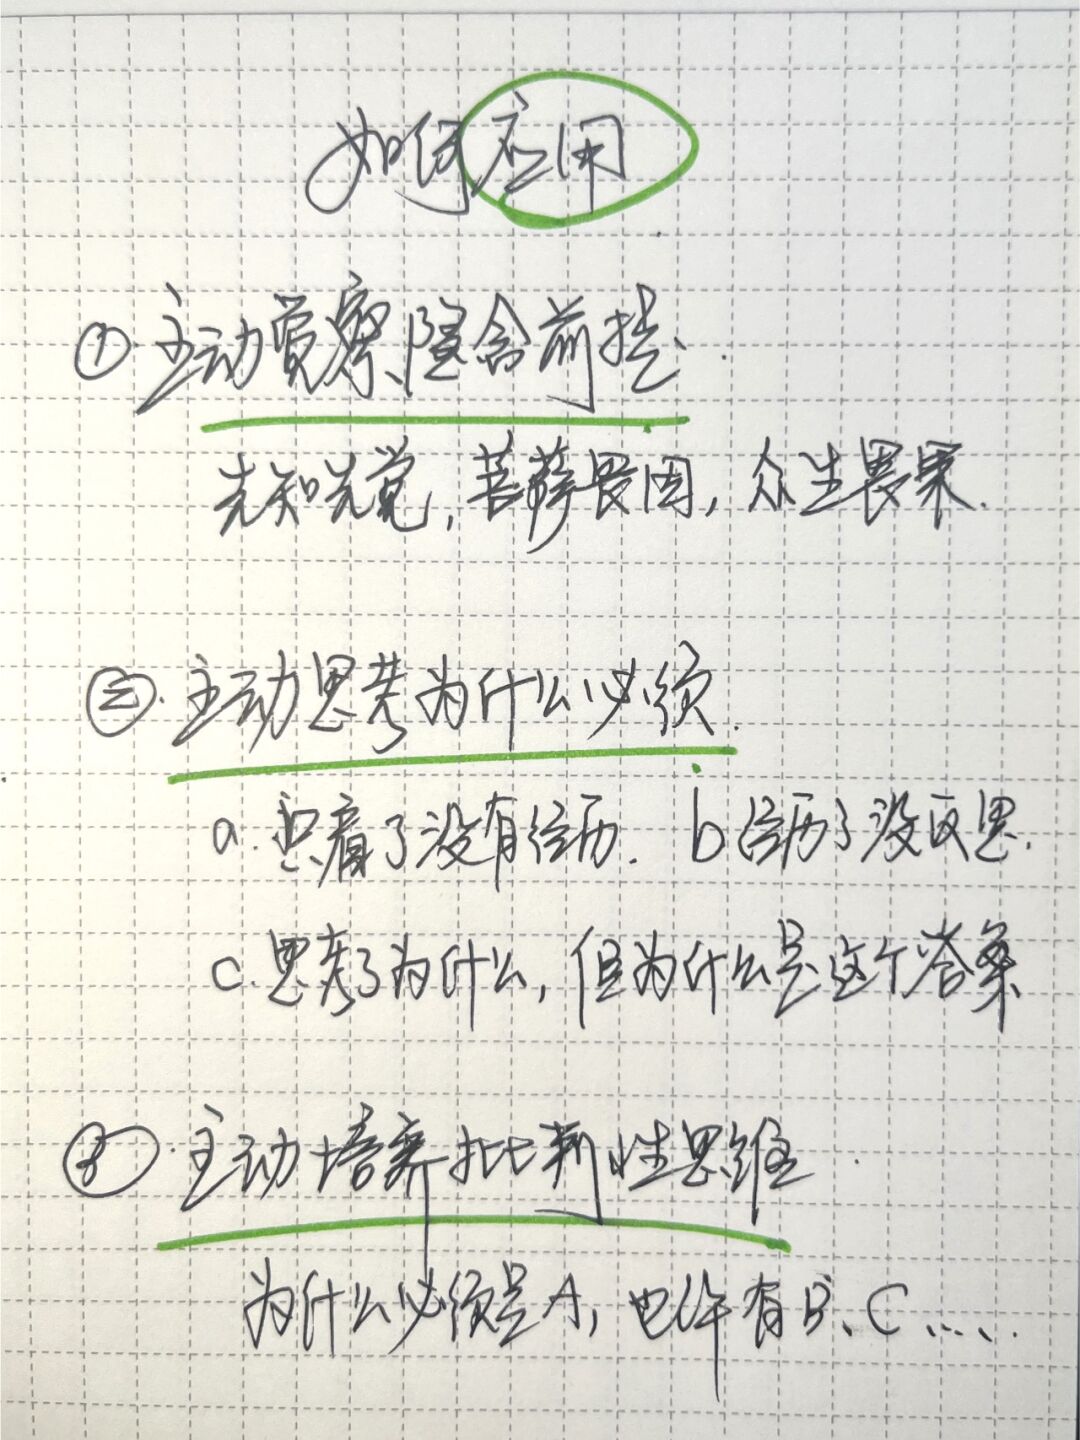 如何应用
① 主动觉察隐含前提.
先知先觉,菩萨畏因,众生畏果.
② 主动思考为什么必须.
a. 只看了没有经历. b 经历了没反思.
c. 思考了为什么,但为什么是这个答案
③ 主动培养批判性思维.
为什么必须是A,也许有B、C、、、.